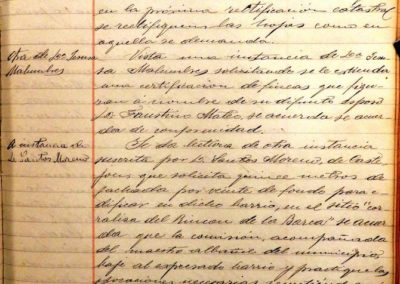 en la próxima rectificación catastral
se rectifiquen las hojas como en
aquello se demanda.
Otra de Dª Teresa
Malumbres
Vista una instancia de Dª Tere-
sa Malumbres solicitando se le extienda
una certificación de fincas que figu-
ran á nombre de su difunto esposo
D. Faustino Mateo, se acuerda se acuer-
da de conformidad.
A instancia de
D. Santos Moreno
Se da lectura de otra instancia
suscrita por D. Santos Moreno de Caste-
que solicita quince metros de
fachada por veinte de fondo para e-
dificar en dicho barrio, en el sitio "co-
rraliza del Rincon de la Barca" se acuer-
da que la comisión, acompañada
del maestro albañil del municipio,
baje al expresado barrio y practique las
necesarias